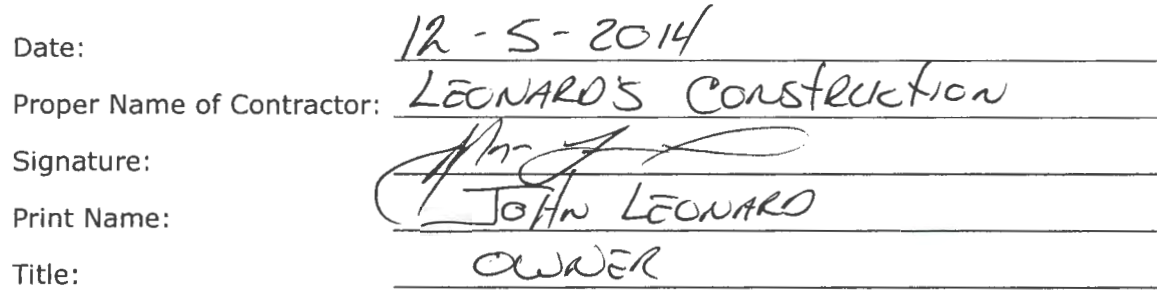 Date: 12-5-2014
Proper Name of Contractor: LEONARD'S CONSTRUCTION
Signature:
Print Name: JOHN LEONARD
Title: OWNER